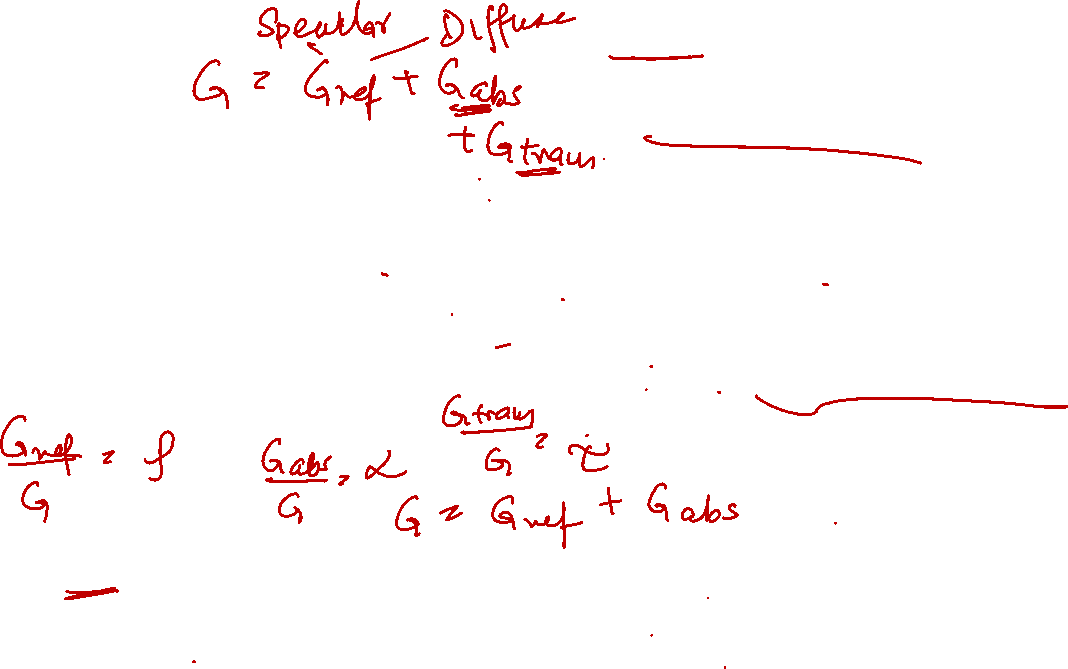 Specular Diffuse
G = Gref + Gabs
+ Gtrans
Gref/G = ρ Gabs/G = α Gtrans/G = τ
G = Gref + Gabs